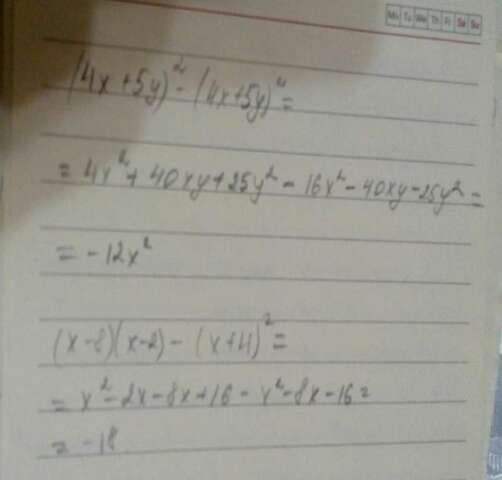 Mo Tu We Th Fr Sa Su
(4x+5y)² - (4x+5y)² =
= 4x² + 40xy + 25y² - 16x² - 40xy - 25y² =
= -12x²
(x-8)(x-2) - (x+4)² =
= x² - 2x - 8x + 16 - x² - 8x - 16 =
= -18